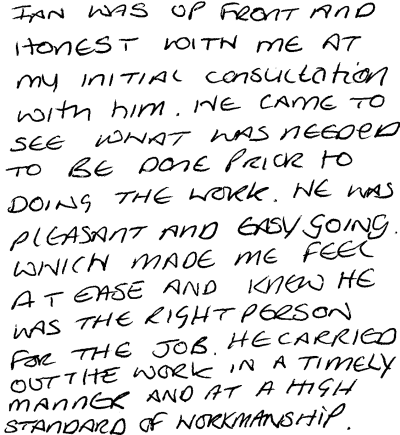 IAN WAS UP FRONT AND
HONEST WITH ME AT
my INITIAL consultation
with him. HE CAME TO
SEE WHAT WAS NEEDED
TO BE DONE PRIOR to
DOING THE WORK. HE WAS
PLEASANT AND EASY GOING.
WHICH MADE ME FEEL
AT EASE AND KNEW HE
WAS THE RIGHT PERSON
FOR THE JOB. HE CARRIED
OUT THE WORK IN A TIMELY
MANNER AND AT A HIGH
STANDARD OF WORKMANSHIP.